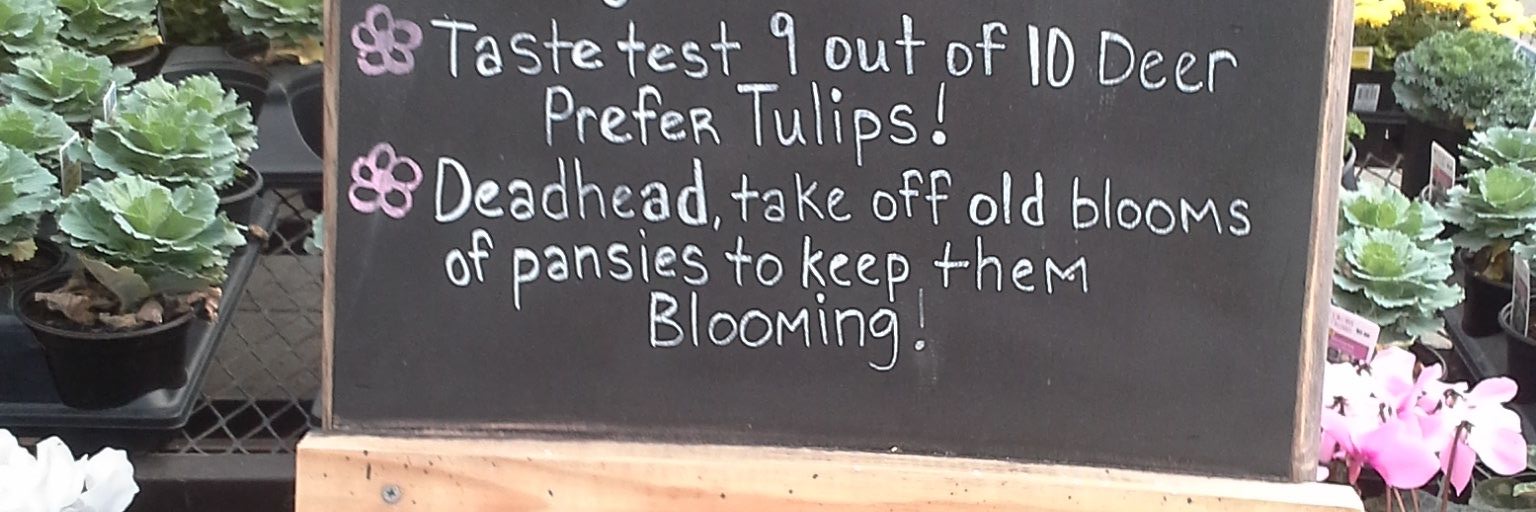 Taste test 9 out of 10 Deer
Prefer Tulips!
Deadhead, take off old blooms
of pansies to keep them
Blooming!